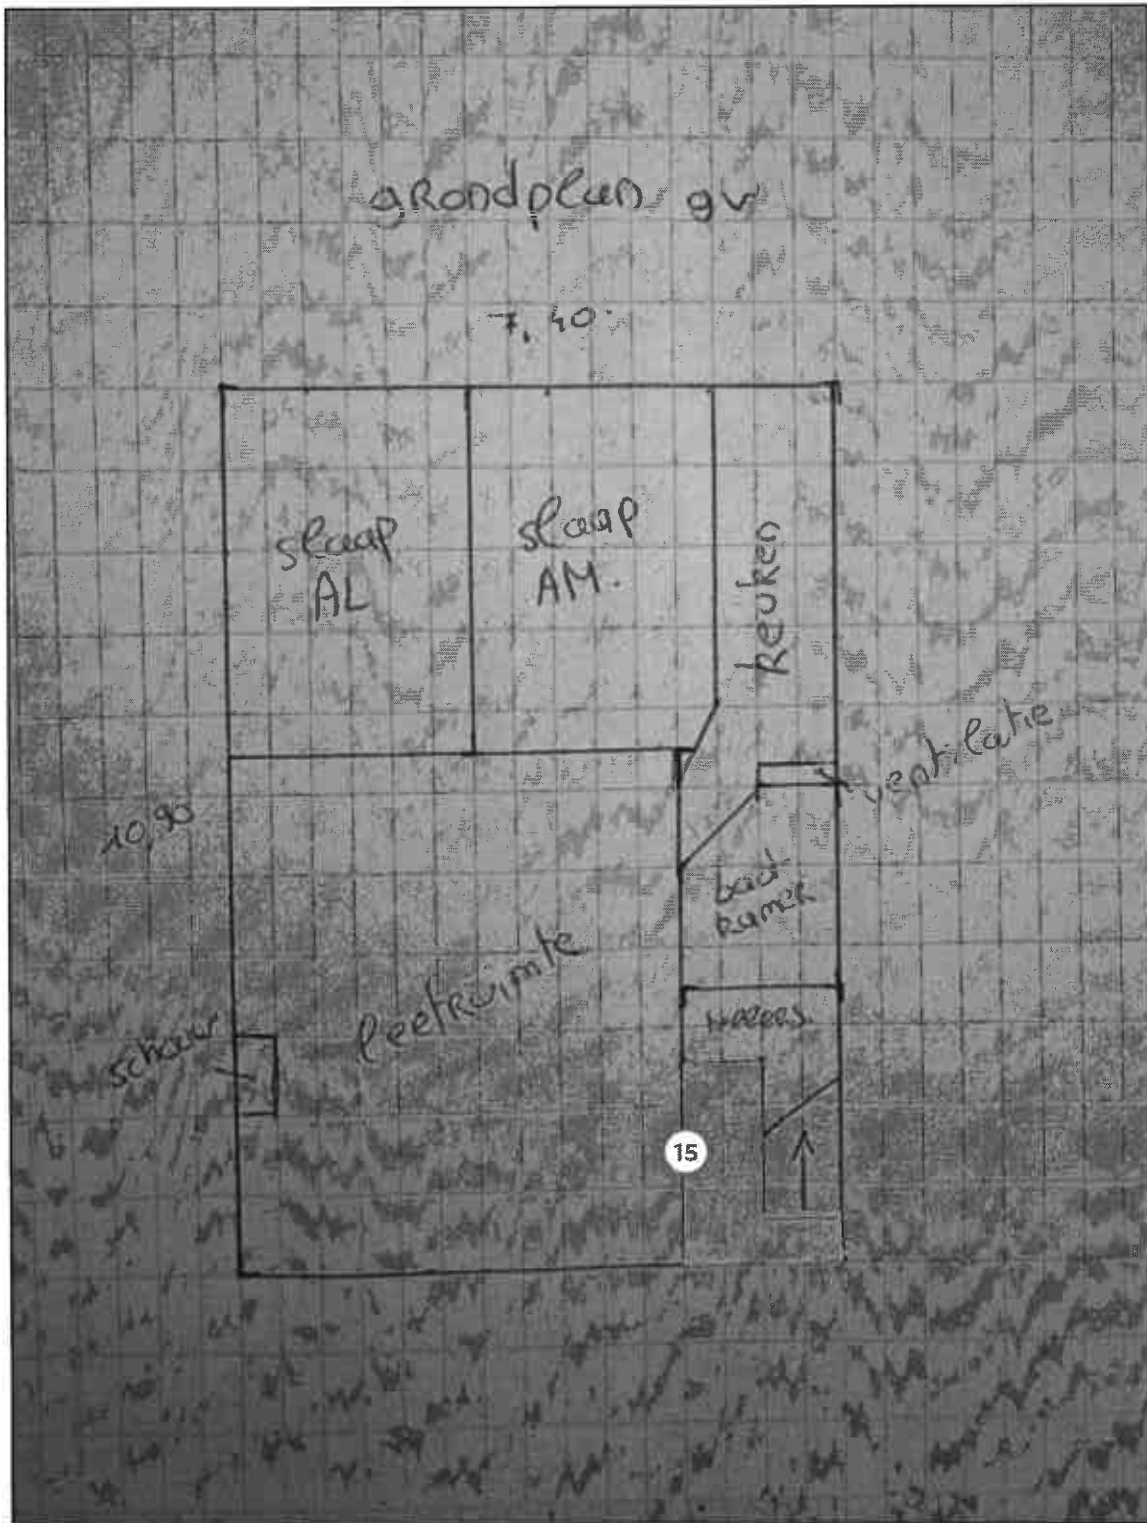 grondplan gv
7,40
slaap
AL
slaap
AM.
keuken
ventilatie
10,90
bad
kamer
leefruimte
schouw
15